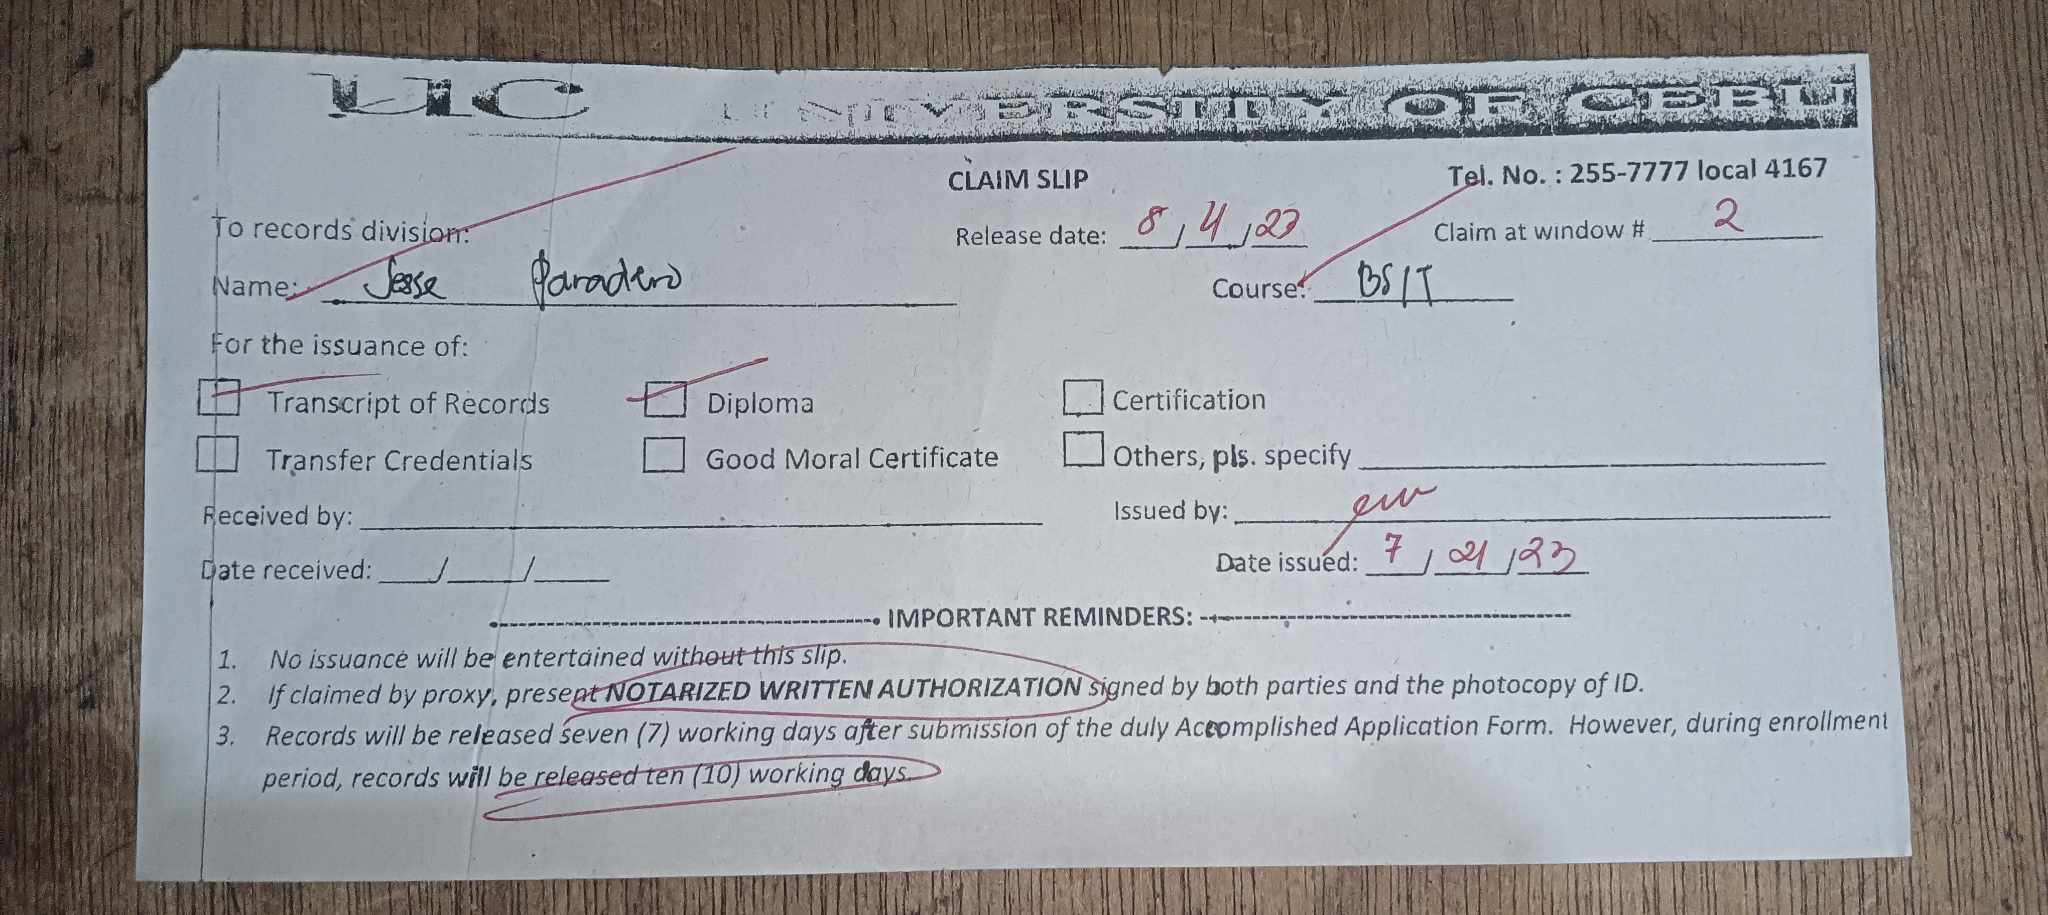 UC UNIVERSITY OF CEBU
CLAIM SLIP
Tel. No. : 255-7777 local 4167
To records division:
Release date: 8 / 4 / 23
Claim at window # 2
Name: Jesse Paradero
Course: BSIT
For the issuance of:
Transcript of Records
Diploma
Certification
Transfer Credentials
Good Moral Certificate
Others, pls. specify
Received by:
Issued by:
Date received: / /
Date issued: 7 / 21 / 23
IMPORTANT REMINDERS:
1. No issuance will be entertained without this slip.
2. If claimed by proxy, present NOTARIZED WRITTEN AUTHORIZATION signed by both parties and the photocopy of ID.
3. Records will be released seven (7) working days after submission of the duly Accomplished Application Form. However, during enrollment
period, records will be released ten (10) working days.